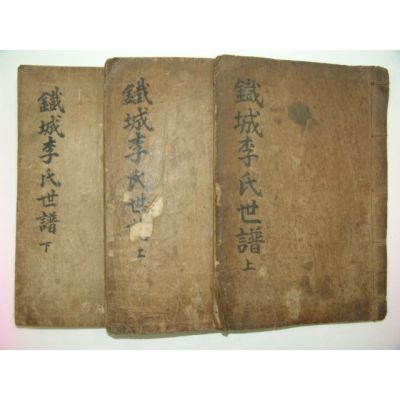 鐵城李氏世譜 上
鐵城李氏世 上
鐵城李氏世譜 下